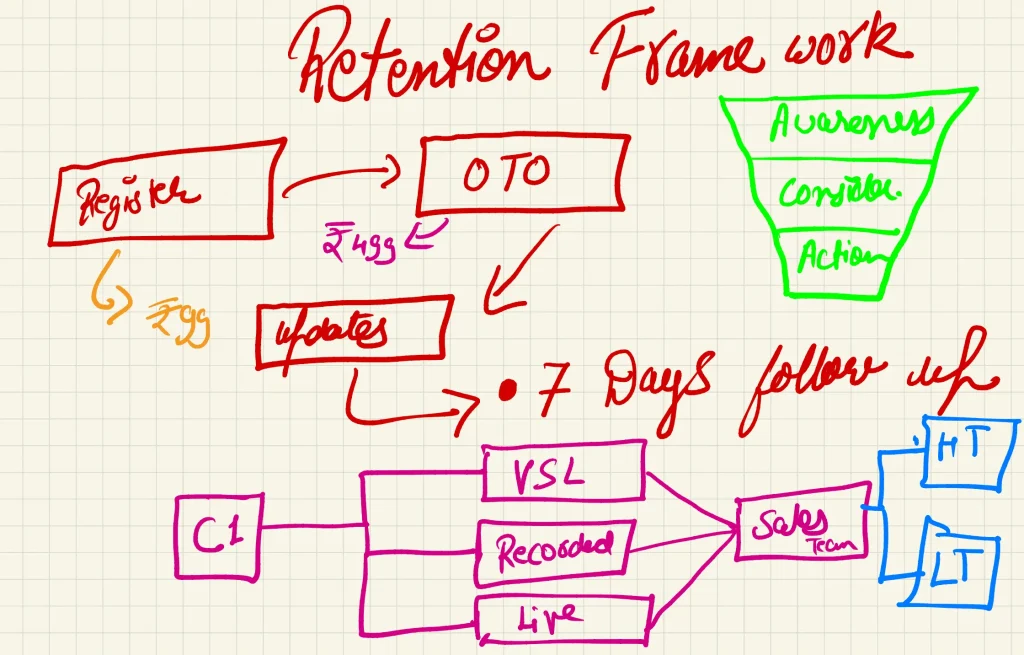 Retention Frame work
Awareness
Consider.
Action
Register
OTO
₹499
₹99
updates
• 7 Days follow up
HT
VSL
C1
Sales
Team
Recorded
LT
Live